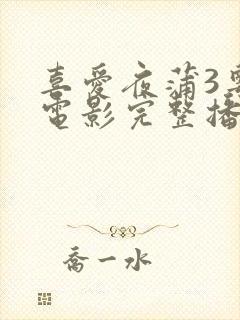 喜愛夜蒲3
電影完整播
喬一水